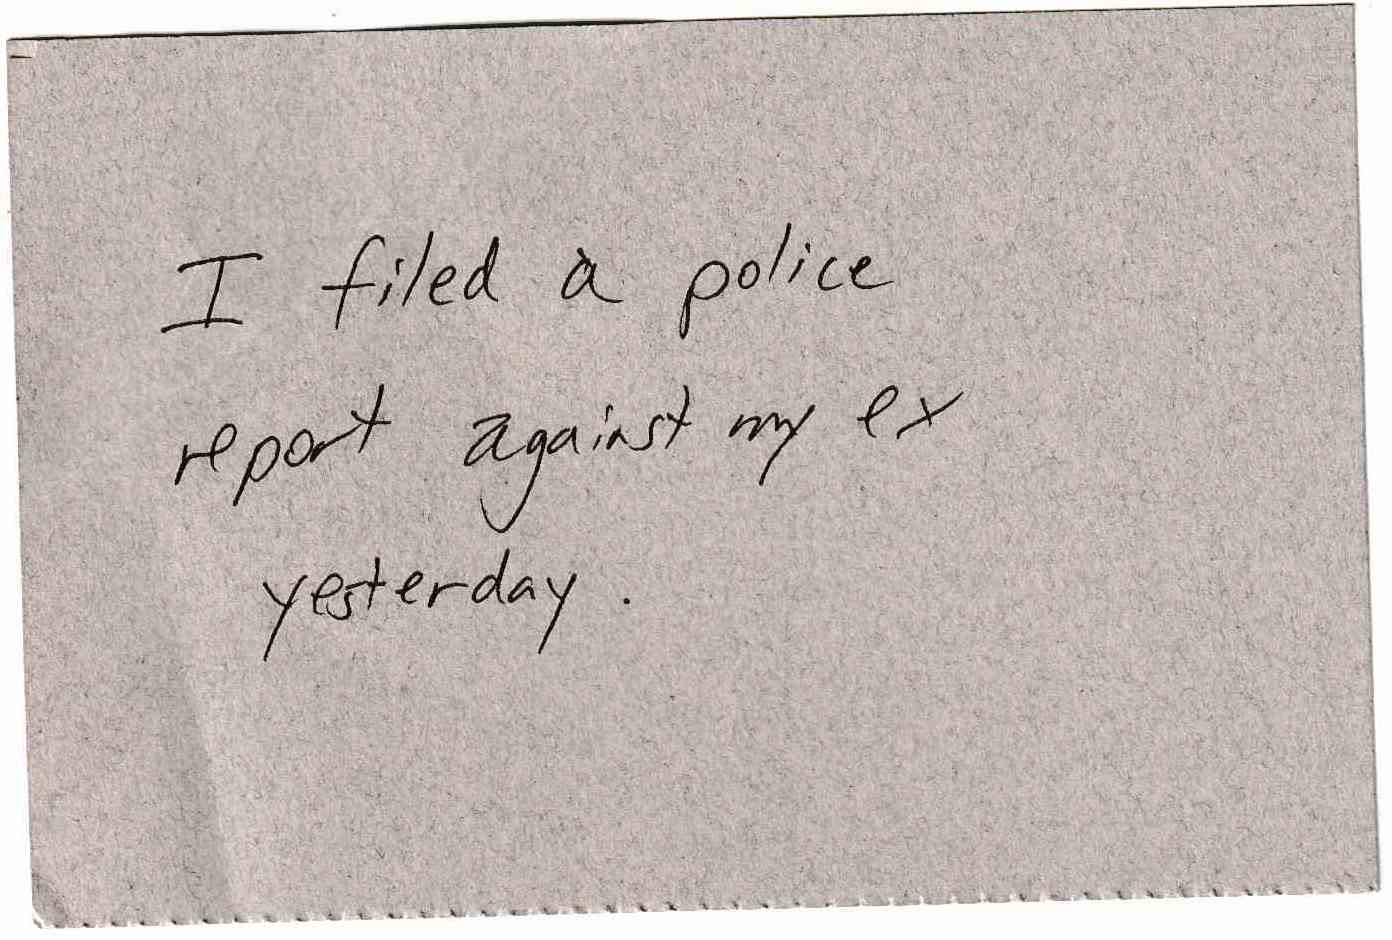 I filed a police
report against my ex
yesterday.